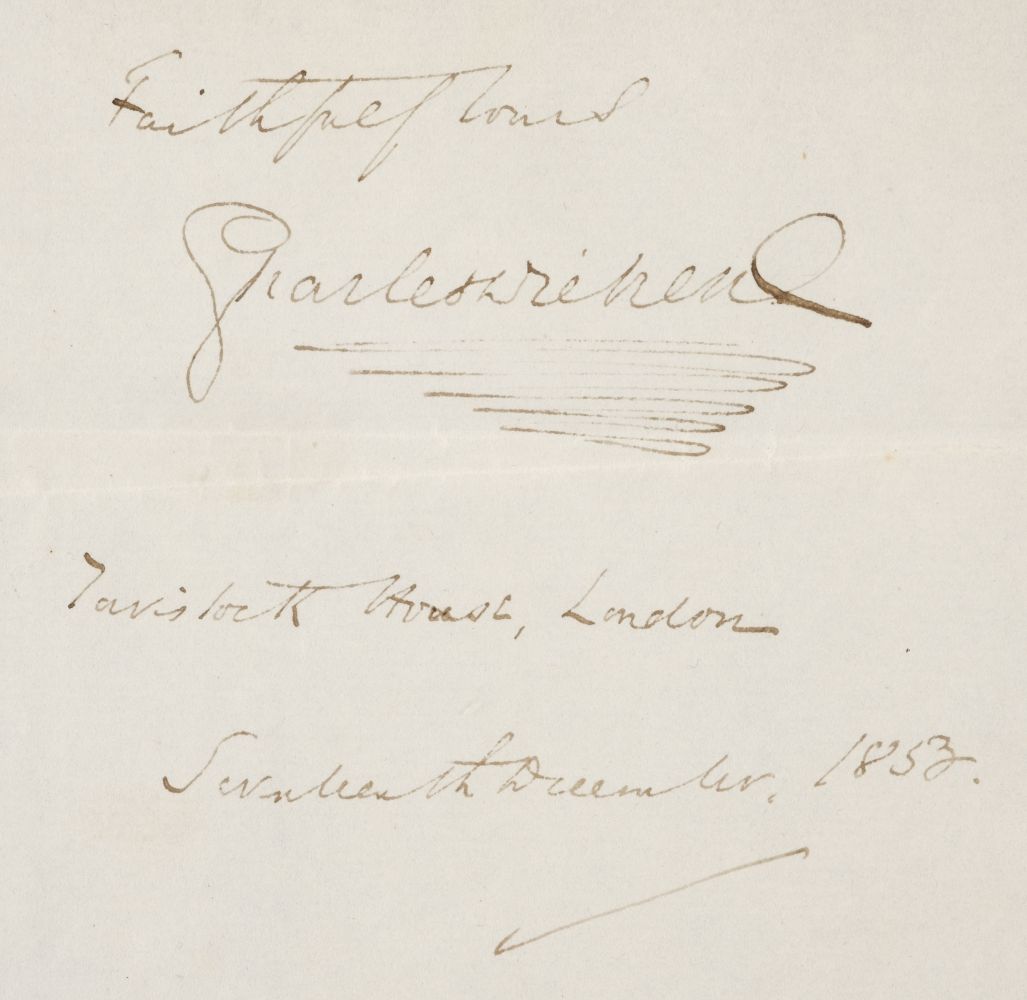 Faithfuly Yours
Charles Dickens
Tavistock House, London
Seventeenth December, 1853.